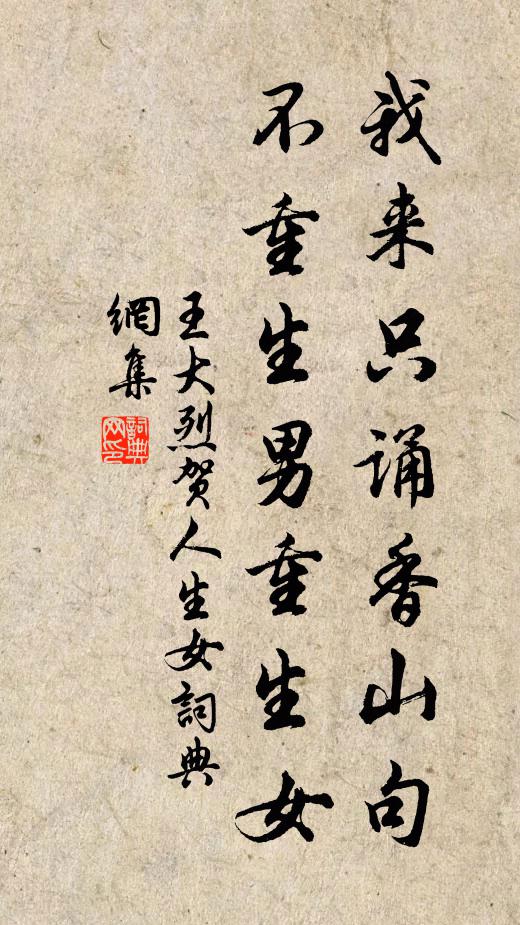 我来只诵香山句
不重生男重生女
王大烈贺人生女詞典
網集
詞典
网印